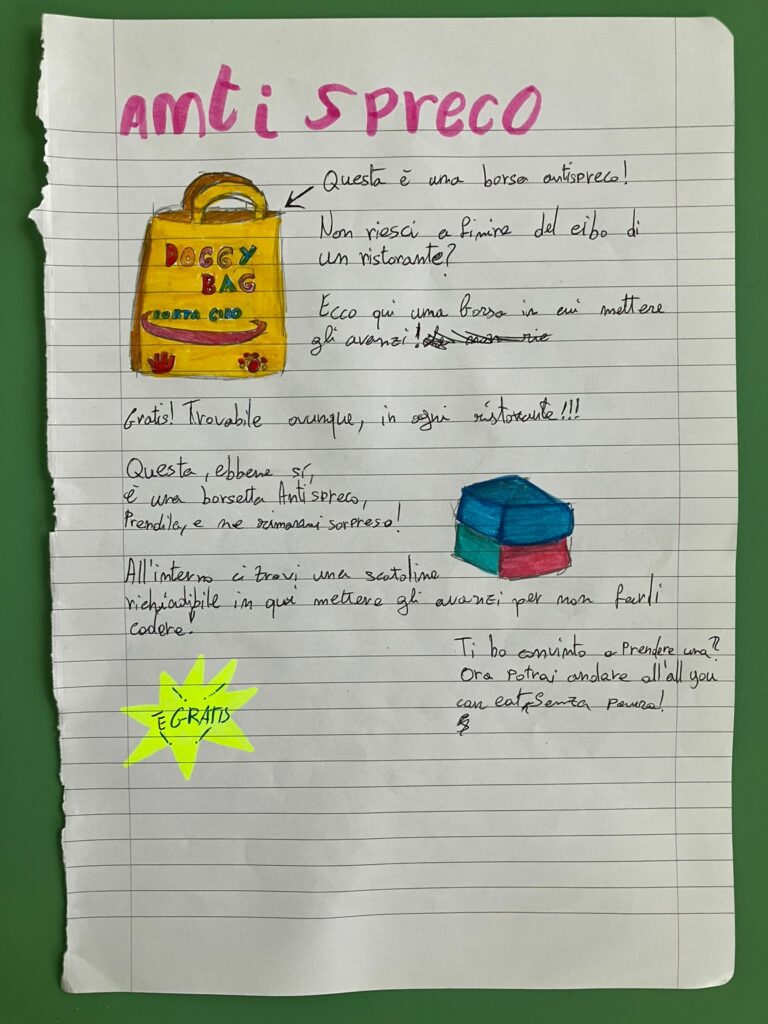 Anti spreco
Questa è una borsa antispreco!
Non riesci a finire del cibo di
un ristorante?
DOGGY
BAG
PORTA CIBO
Ecco qui una borsa in cui mettere
gli avanzi!
Gratis! Trovabile ovunque, in ogni ristorante!!!
Questa, ebbene sí,
è una borsetta Antispreco,
Prendila, e ne rimarrai sorpreso!
All'interno ci trovi una scatoline
richiudibile in qui mettere gli avanzi per non farli
cadere.
Ti ho convinto a Prendere una?
Ora potrai andare all'all you
can eat, Senza paura!
È GRATIS